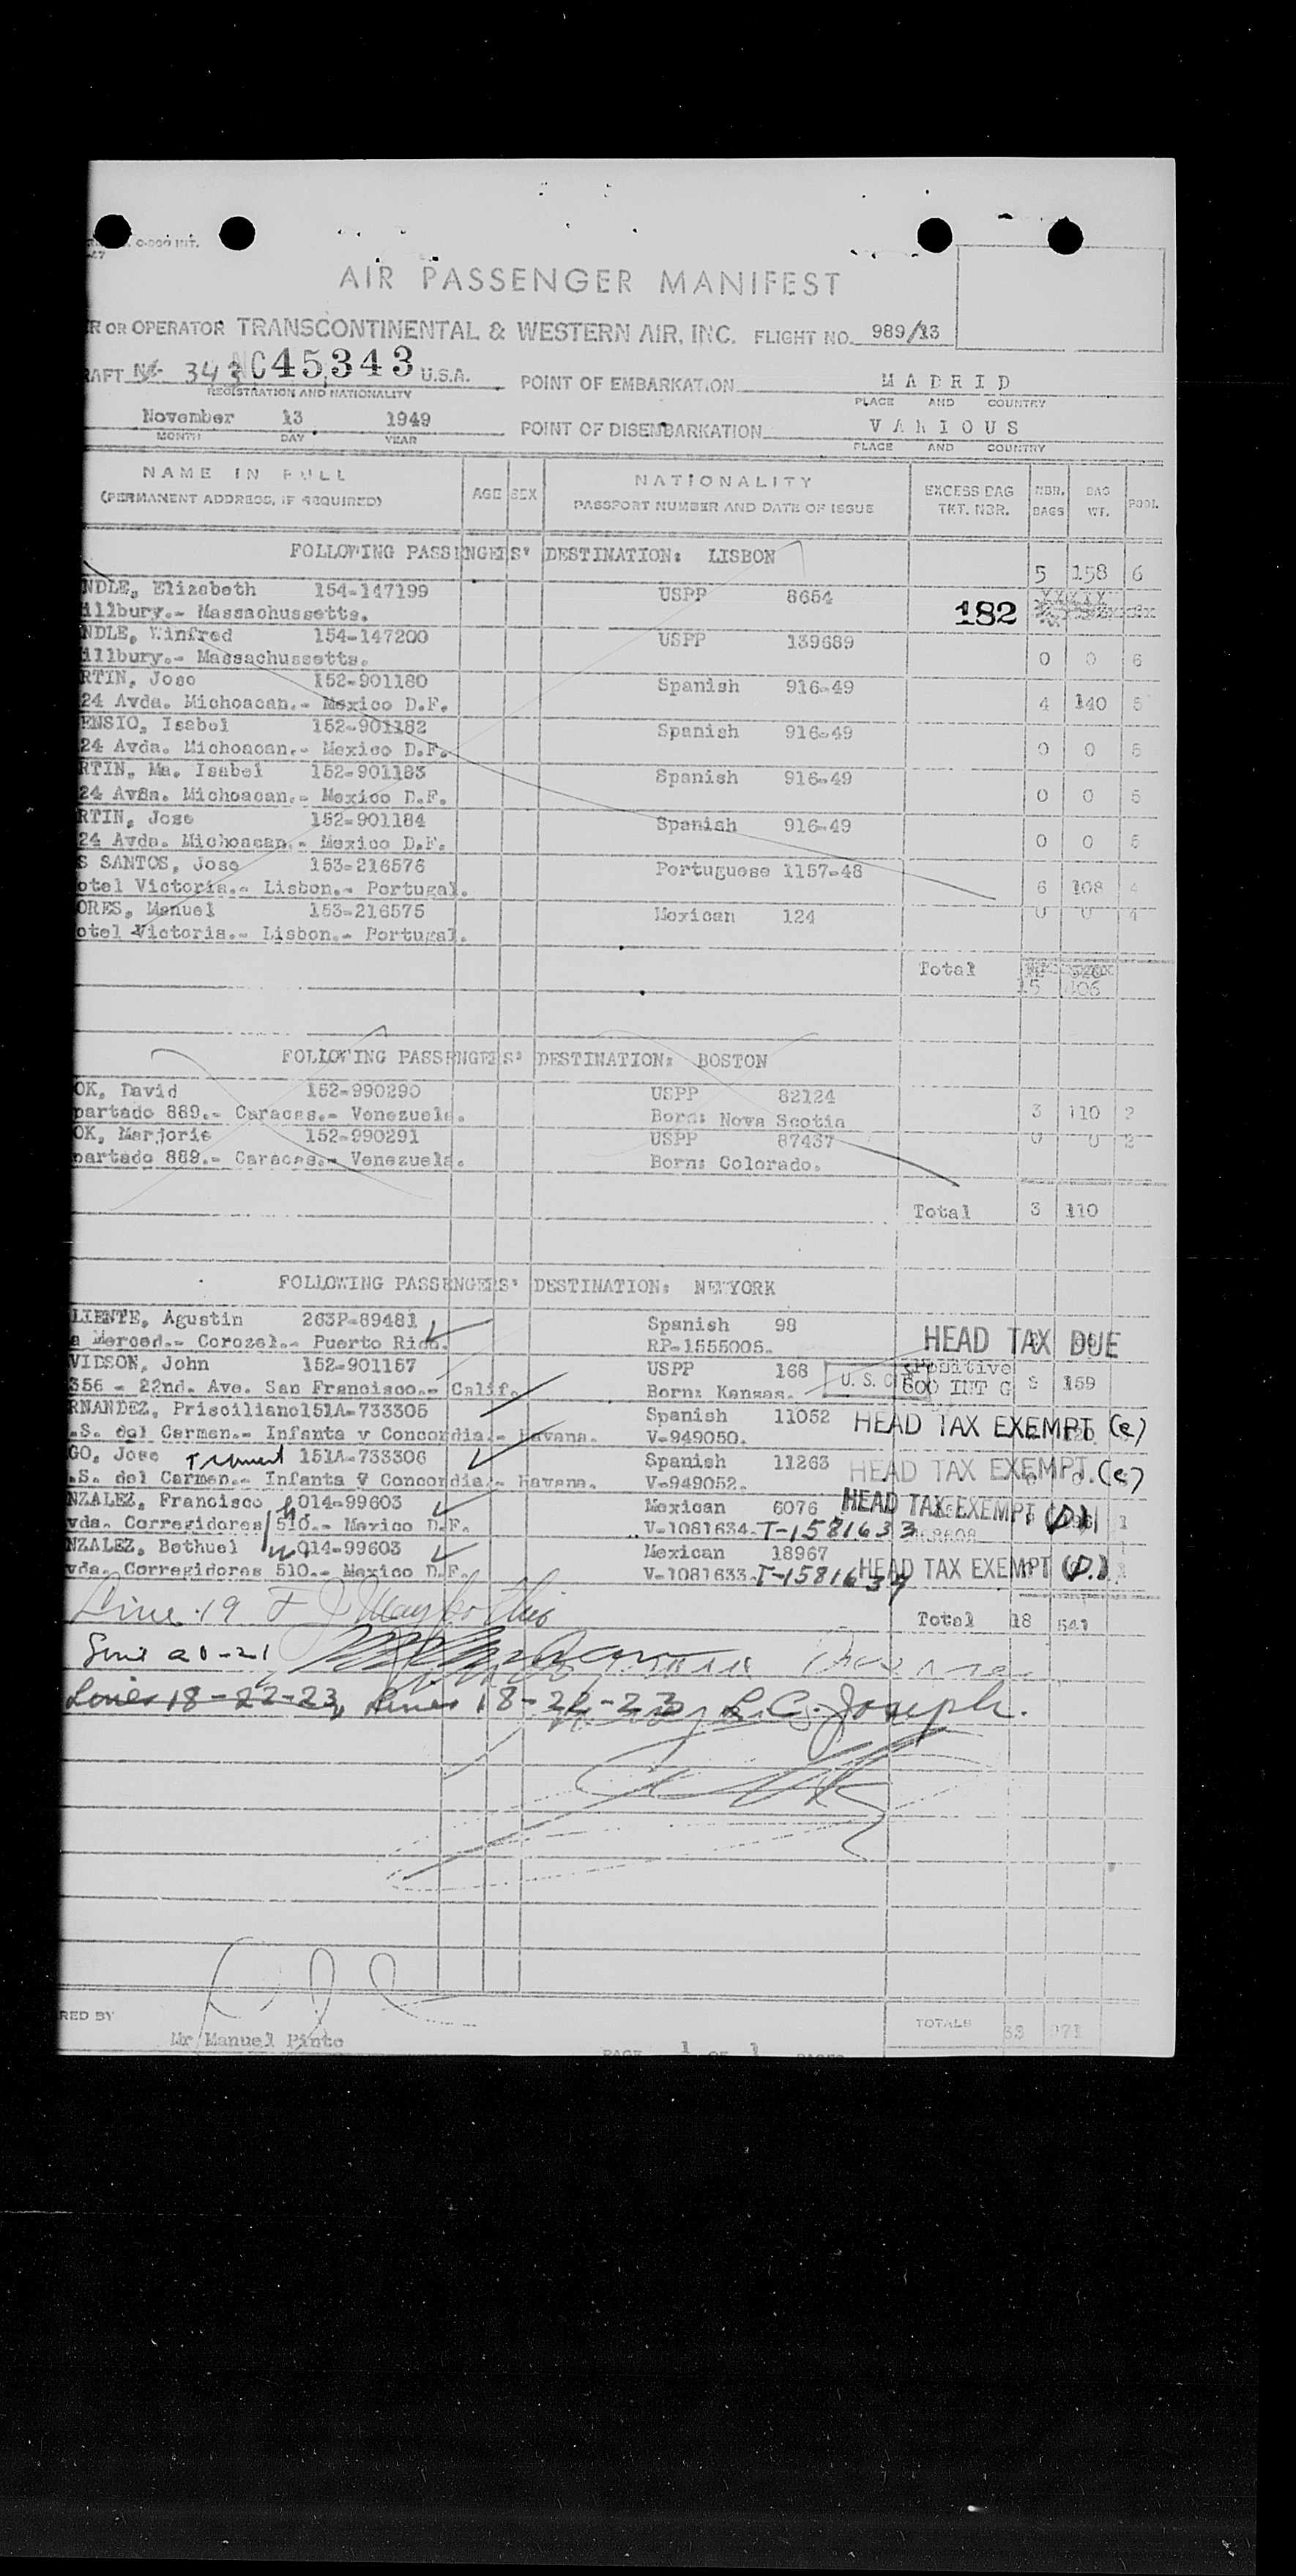 0-009 INT.
47
AIR PASSENGER MANIFEST
R OR OPERATOR TRANSCONTINENTAL & WESTERN AIR, INC. FLIGHT NO. 989/13
RAFT 343 NC45343 U.S.A. POINT OF EMBARKATION MADRID
REGISTRATION AND NATIONALITY PLACE AND COUNTRY
November 13 1949 POINT OF DISEMBARKATION VARIOUS
MONTH DAY YEAR PLACE AND COUNTRY
NAME IN FULL AGE SEX NATIONALITY EXCESS BAG NBR. BAG POOL
(PERMANENT ADDRESS, IF REQUIRED) PASSPORT NUMBER AND DATE OF ISSUE TKT. NBR. BAGS WT.
FOLLOWING PASSENGERS' DESTINATION: LISBON
5 158 6
NDLE, Elizabeth 154-147199 USPP 8654
illbury.- Massachussetts. 182
NDLE, Winfred 154-147200 USPP 139689
illbury.- Massachussetts. 0 0 6
RTIN, Jose 152-901180 Spanish 916-49
24 Avda. Michoacan.- Mexico D.F. 4 140 5
ENSIO, Isabel 152-901182 Spanish 916-49
24 Avda. Michoacan.- Mexico D.F. 0 0 5
RTIN, Ma. Isabel 152-901183 Spanish 916-49
24 Avda. Michoacan.- Mexico D.F. 0 0 5
RTIN, Jose 152-901184 Spanish 916-49
24 Avda. Michoacan.- Mexico D.F. 0 0 5
S SANTOS, Jose 153-216576 Portuguese 1157-48
otel Victoria.- Lisbon.- Portugal. 6 108 4
ORES, Manuel 153-216575 Mexican 124 0 0 4
otel Victoria.- Lisbon.- Portugal.
Total
15 406
FOLLOWING PASSENGERS' DESTINATION: BOSTON
OK, David 152-990290 USPP 82124
partado 889.- Caracas.- Venezuela. Born: Nova Scotia 3 110 2
OK, Marjorie 152-990291 USPP 87437 0 0 2
partado 889.- Caracas.- Venezuela. Born: Colorado.
Total 3 110
FOLLOWING PASSENGERS' DESTINATION: NEWYORK
LIENTE, Agustin 263P-89481 Spanish 98
a Merced.- Corozal.- Puerto Rico. RP-1555005. HEAD TAX DUE
VIDSON, John 152-901157 USPP 168 U. S. C.
356 - 22nd. Ave. San Francisco.- Calif. Born: Kansas. 600 INT G 159
RNANDEZ, Prisciliano 151A-733305 Spanish 11052 HEAD TAX EXEMPT (e)
.S. del Carmen.- Infanta y Concordia.- Havana. V-949050.
GO, Jose 151A-733306 Spanish 11263 HEAD TAX EXEMPT (e)
.S. del Carmen.- Infanta y Concordia.- Havana. V-949052.
NZALEZ, Francisco 014-99603 Mexican 6076 HEAD TAX EXEMPT (D)
vda. Corregidores 510.- Mexico D.F. V-1081634 T-1581633
NZALEZ, Bethuel 014-99603 Mexican 18967 HEAD TAX EXEMPT (D)
vda. Corregidores 510.- Mexico D.F. V-1081633 T-1581634
Line 19 Total 18 541
Line 20-21
Lines 18-22-23, Lines 18-22-23 by L.C. Joseph.
RED BY
Mr Manuel Pinto TOTALS
PAGE 1 OF 1 PAGES